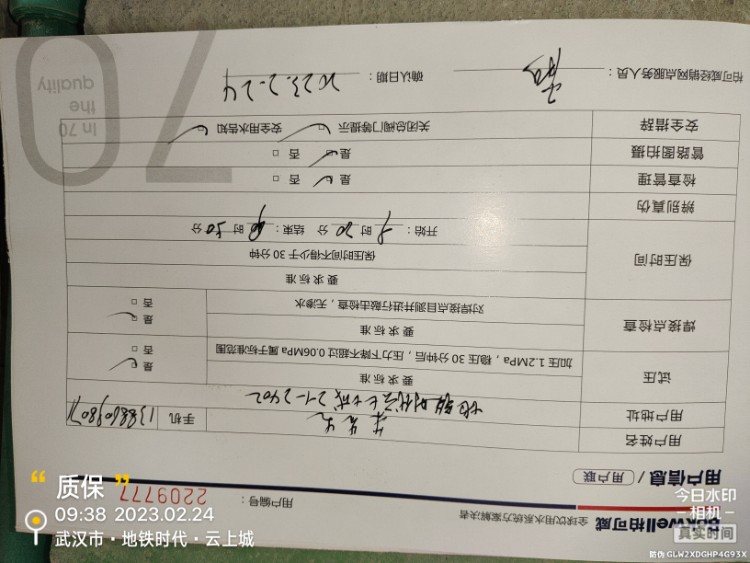 Bokwell柏可威
全球饮用水系统方案解决者
用户编号：
2209777
用户信息 / 用户联
用户姓名
朱先生
手机
用户地址
地铁时代云上城 21-2402
试压
要求标准
加压1.2MPa，稳压，30分钟后，压力下降不超过0.06MPa属于标准范围
是
否
焊接点检查
要求标准
对焊接点目测并进行敲击检查，无渗水
是
否
保压时间
要求标准
保压时间不得少于30分钟
开始：9时20分 结束：时30分
辨别真伪
检查管理
是 否
管路图拍摄
是 否
安全措辞
关闭总阀门等提示
安全用水告知
柏可威经销网点服务人员：
确认日期：2023.2.24
70
In 70
the
quality
质保
09:38 2023.02.24
武汉市·地铁时代·云上城
今日水印
相机
真实时间
防伪 GLW2XDGHP4G93X